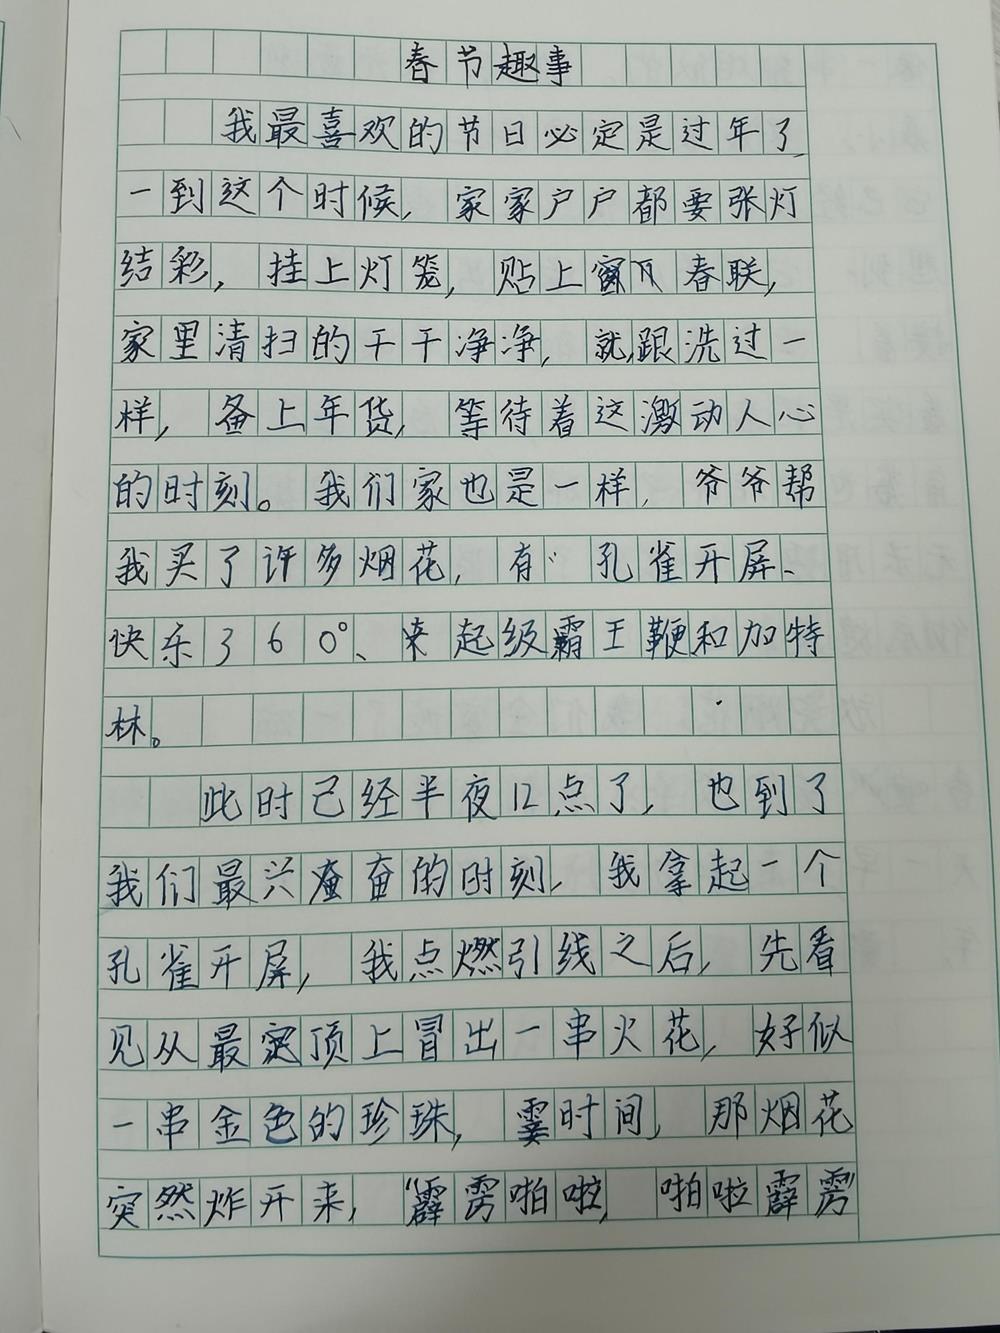 春节趣事
我最喜欢的节日必定是过年了
一到这个时候，家家户户都要张灯
结彩，挂上灯笼，贴上窗爪春联，
家里清扫的干干净净，就跟洗过一
样，备上年货，等待着这激动人心
的时刻。我们家也是一样，爷爷帮
我买了许多烟花，有孔雀开屏、
快乐360°、来起级霸王鞭和加特
林。
此时已经半夜12点了，也到了
我们最兴奋的时刻，我拿起一个
孔雀开屏，我点燃引线之后，先看
见从最顶上冒出一串火花，好似
一串金色的珍珠，霎时间，那烟花
突然炸开来，“霹雳啪啦，啪啦霹雳”